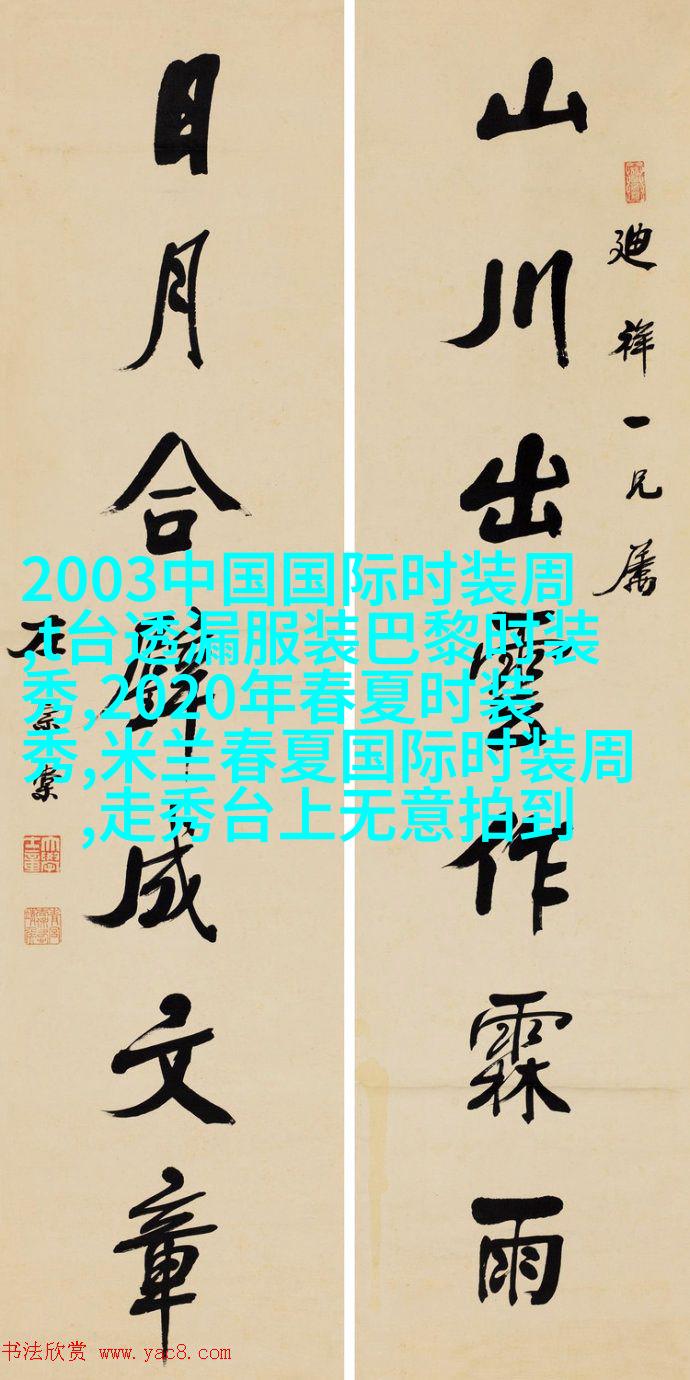 廸祥一兄属
山川出雲作霖雨
日月合璧成文章
左宗棠
2003中国国际时装周
,t台透漏服装巴黎时装
秀,2020年春夏时装
秀,米兰春夏国际时装周
,走秀台上无意拍到
书法欣赏 www.yac8.com